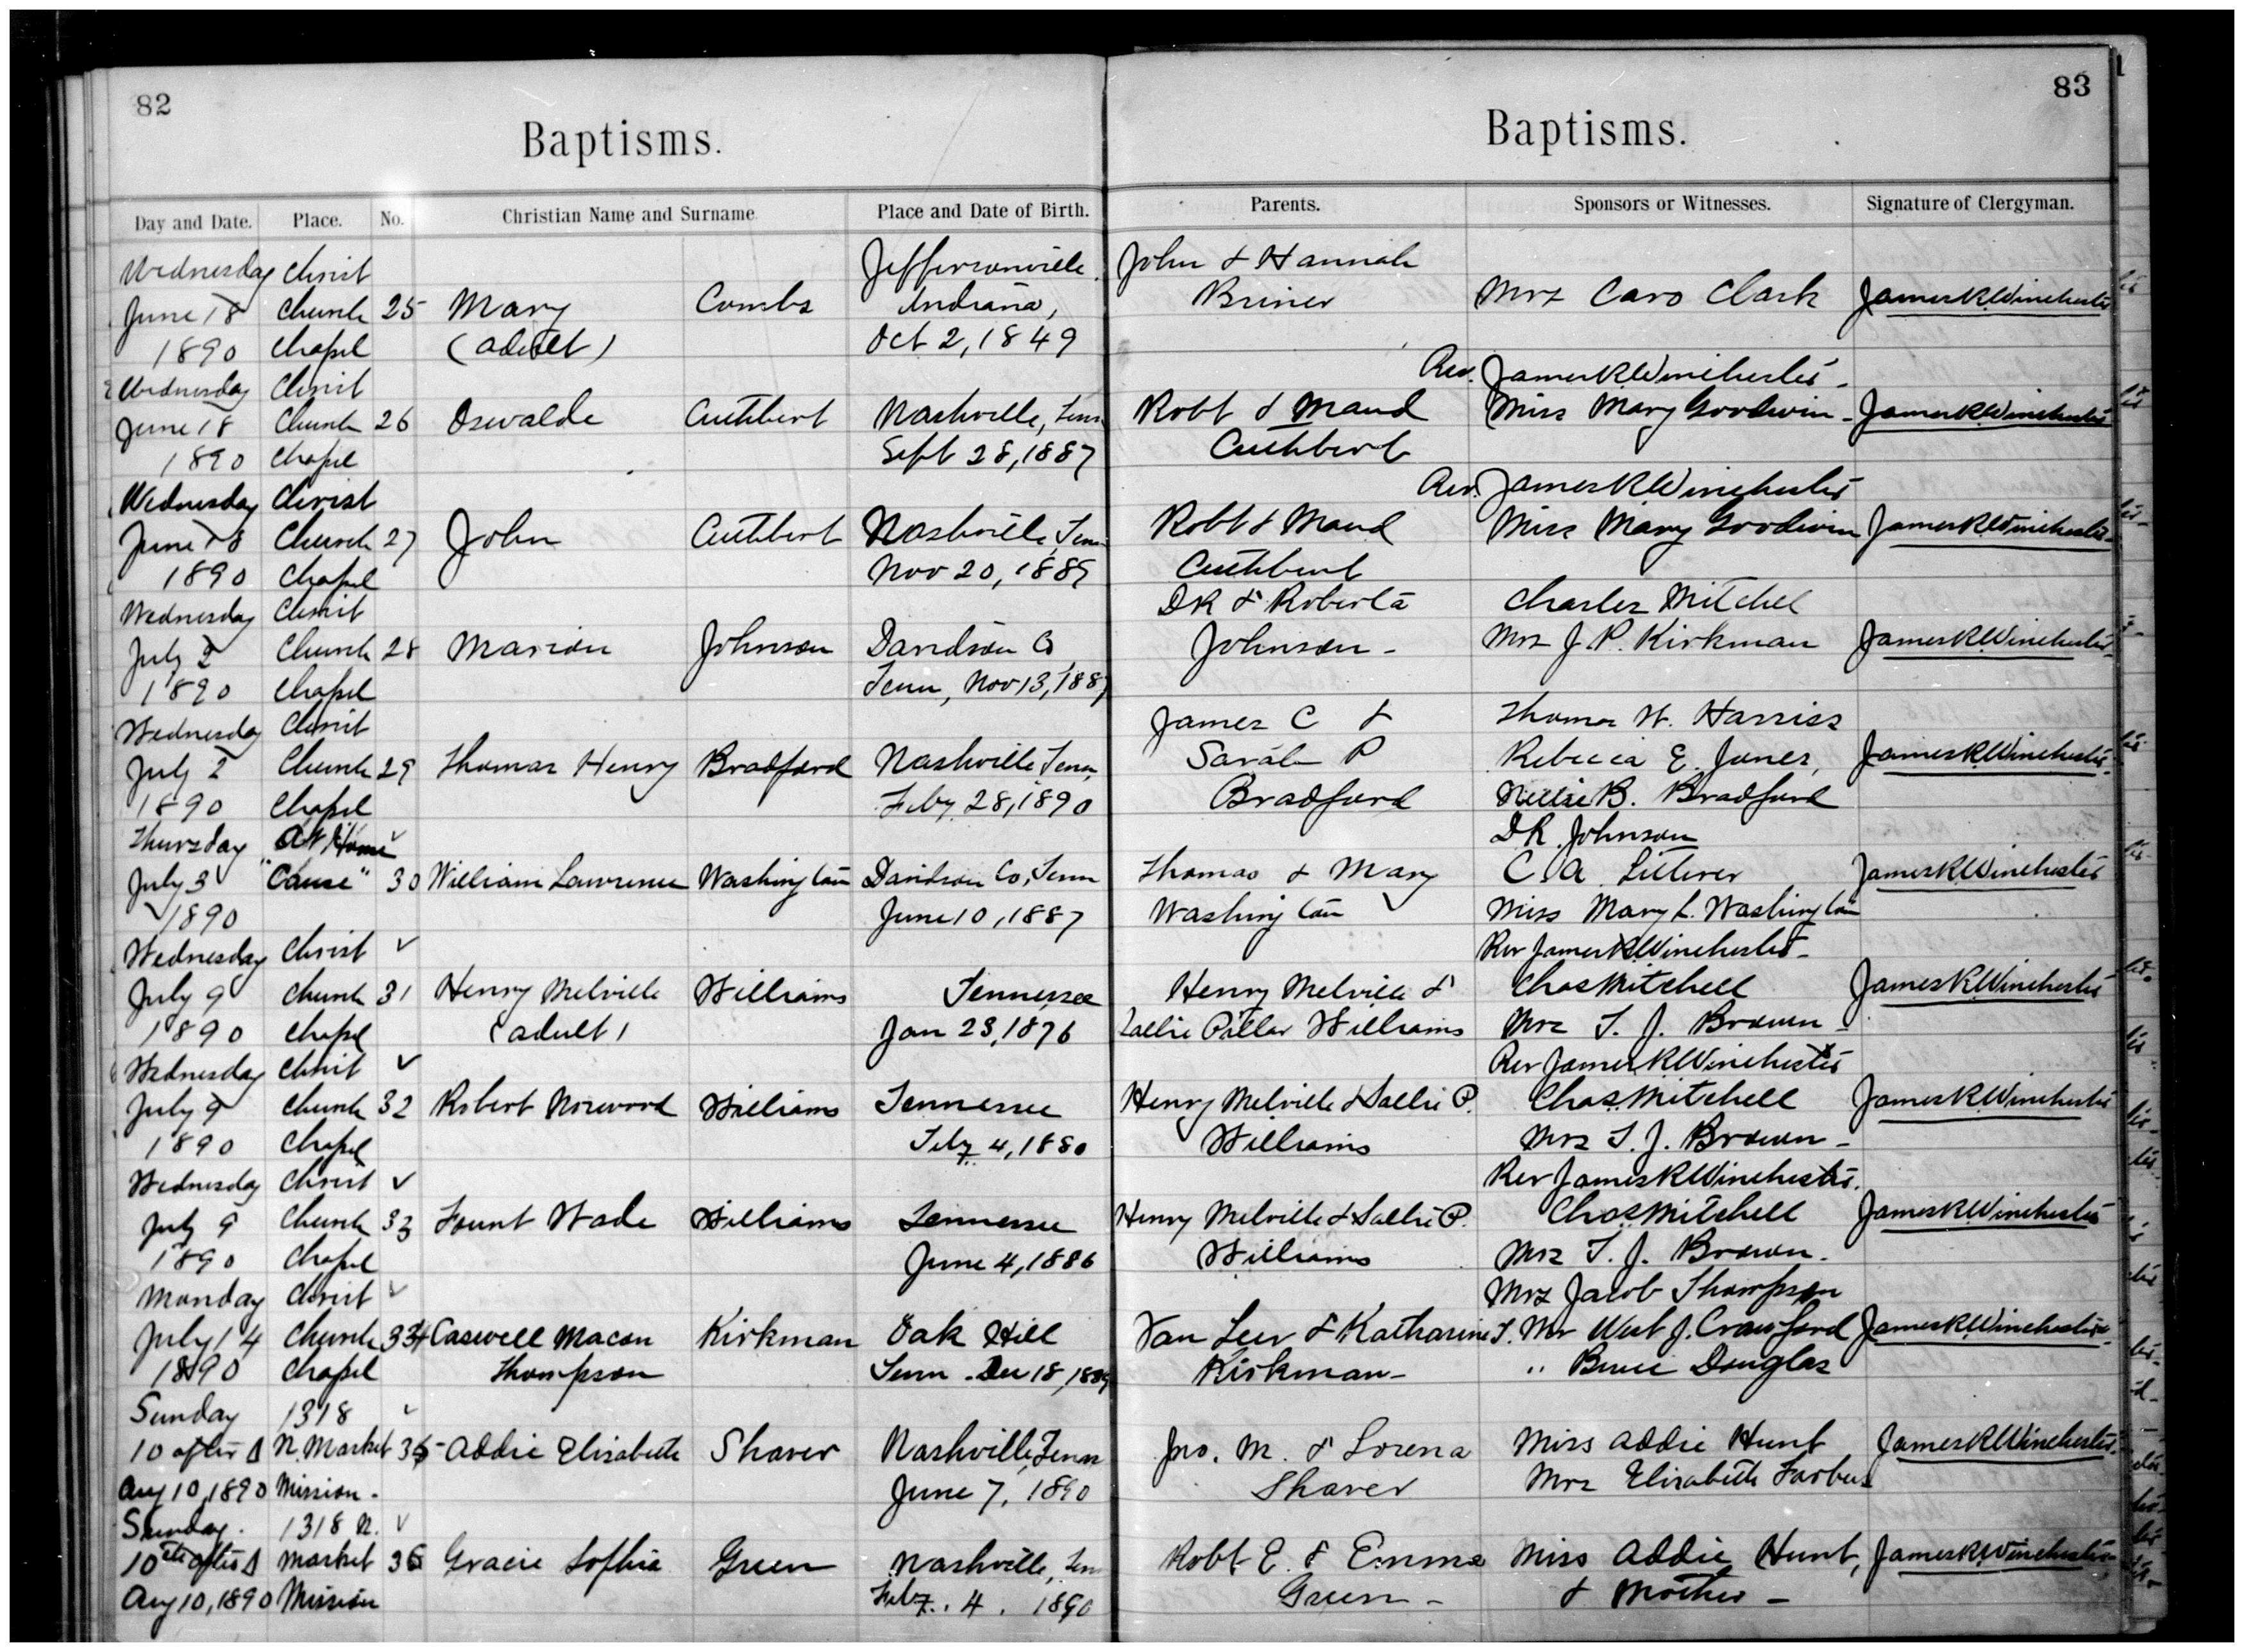 82
Baptisms.
Day and Date. Place. No. Christian Name and Surname Place and Date of Birth.
Wednesday Christ Jeffersonville
June 18 Church 25 Mary Combs Indiana,
1890 Chapel (adult) Oct 2, 1849
Wednesday Christ
June 18 Church 26 Oswalde Cuthbert Nashville, Tenn
1890 Chapel Sept 28, 1887
Wednesday Christ
June 18 Church 27 John Cuthbert Nashville, Tenn
1890 Chapel Nov 20, 1889
Wednesday Christ
July 2 Church 28 Marion Johnson Davidson Co
1890 Chapel Tenn, Nov 13, 1887
Wednesday Christ
July 2 Church 29 Thomas Henry Bradford Nashville Tenn,
1890 Chapel Feby 28, 1890
Thursday At Home
July 3 "Cause" 30 William Lawrence Washington Davidson Co, Tenn
1890 June 10, 1887
Wednesday Christ
July 9 Church 31 Henry Melville Williams Tennessee
1890 Chapel (adult) Jan 23, 1876
Wednesday Christ
July 9 Church 32 Robert Norwood Williams Tennessee
1890 Chapel Feby 4, 1880
Wednesday Christ
July 9 Church 33 Fount Wade Williams Tennessee
1890 Chapel June 4, 1886
Monday Christ
July 14 Church 34 Caswell Macon Kirkman Oak Hill
1890 Chapel Thompson Tenn. Dec 18, 1889
Sunday 1318
10 after Δ N. Market 35 Addie Elizabeth Shaver Nashville, Tenn
Aug 10, 1890 Mission. June 7, 1890
Sunday. 1318 N.
10th after Δ Market 36 Gracie Sophia Green Nashville, Tenn
Aug 10, 1890 Mission Feby. 4. 1890
83
Baptisms.
Parents. Sponsors or Witnesses. Signature of Clergyman.
John & Hannah
Briner Mrs Caro Clark James R. Winchester
Rev. James R. Winchester
Robt & Maud Miss Mary Goodwin James R. Winchester
Cuthbert
Rev. James R. Winchester
Robt & Maud Miss Mary Goodwin James R. Winchester
Cuthbert
DR & Roberta Charles Mitchel
Johnson Mrs J. P. Kirkman James R. Winchester
James C & Thomas W. Harriss
Sarah P Rebecca E. Jones, James R. Winchester
Bradford Nellie B. Bradford
DR. Johnson
Thomas & Mary C. A. Litterer James R. Winchester
Washington Miss Mary L. Washington
Rev James R. Winchester
Henry Melville & Chas Mitchell James R. Winchester
Sallie Pillar Williams Mrs T. J. Brown
Rev James R Winchester
Henry Melville & Sallie P. Chas. Mitchell James R. Winchester
Williams Mrs T. J. Brown
Rev James R Winchester.
Henry Melville & Sallie P. Chas Mitchell James R. Winchester
Williams Mrs T. J. Brown.
Mrs Jacob Thompson
Van Leer & Katharine T. Mr West J. Crawford James R. Winchester
Kirkman " Bruce Douglas
Jno. M. & Lorena Miss Addie Hunt James R. Winchester
Shaver Mrs Elizabeth Forbes
Robt E. & Emma Miss Addie Hunt, James R. Winchester
Green & Mother